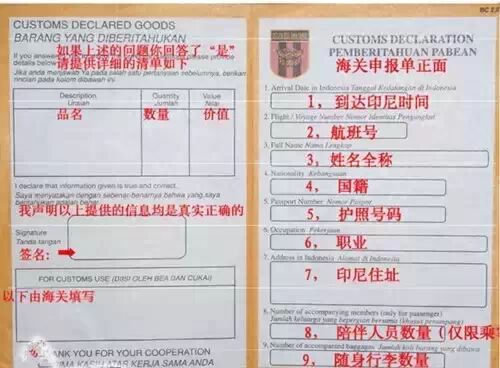 BC 2.2
CUSTOMS DECLARED GOODS
BARANG YANG DIBERITAHUKAN
如果上述的问题你回答了“是”
请提供详细的清单如下
Description
Uraian
Quantity
Jumlah
Value
Nilai
品名
数量
价值
I declare that information given is true and correct.
我声明以上提供的信息均是真实正确的
Signature
Tanda tangan
签名:
FOR CUSTOMS USE (DIISI OLEH BEA DAN CUKAI)
以下由海关填写
THANK YOU FOR YOUR COOPERATION
TERIMA KASIH ATAS KERJA SAMA ANDA
CUSTOMS DECLARATION
PEMBERITAHUAN PABEAN
海关申报单正面
1. Arrival Date in Indonesia Tanggal Kedatangan di Indonesia
1, 到达印尼时间
2. Flight / Voyage Number Nomor Identitas Pengangkut
2, 航班号
3. Full Name Nama Lengkap
3, 姓名全称
4. Nationality Kebangsaan
4, 国籍
5. Passport Number Nomor Paspor
5, 护照号码
6. Occupation Pekerjaan
6, 职业
7. Address in Indonesia Alamat di Indonesia
7, 印尼住址
8. Number of accompanying members (only for passenger)
Jumlah keluarga yang bepergian bersama (khusus penumpang)
8, 陪伴人员数量（仅限乘
9. Number of accompanied baggages Jumlah koli barang yang dibawa
9, 随身行李数量